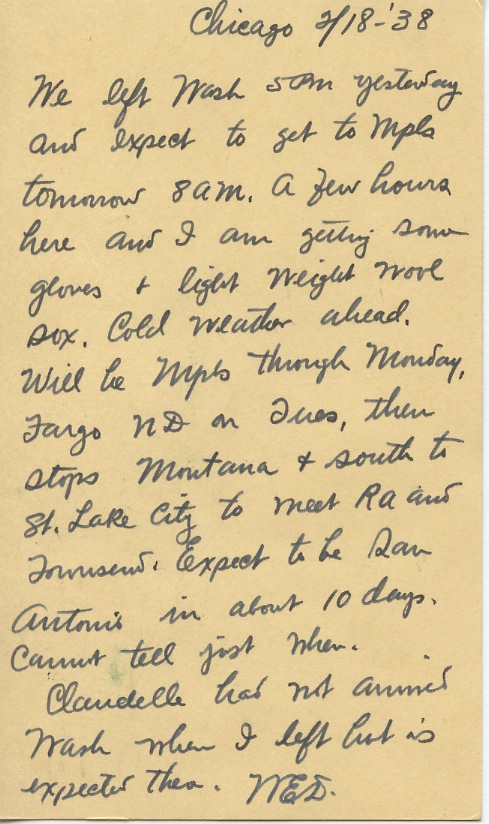 Chicago 2/18-'38
We left Wash 5am yesterday
and expect to get to Mpls
tomorrow 8am. A few hours
here and I am getting some
gloves + light weight wool
sox. Cold weather ahead.
Will be Mpls through Monday,
Fargo ND on Tues, then
stops Montana & south to
St. Lake City to meet Ra and
Townsend. Expect to be San
Antonio in about 10 days.
Cannot tell just when.
Claudelle had not arrived
Wash when I left but is
expected then. WED.